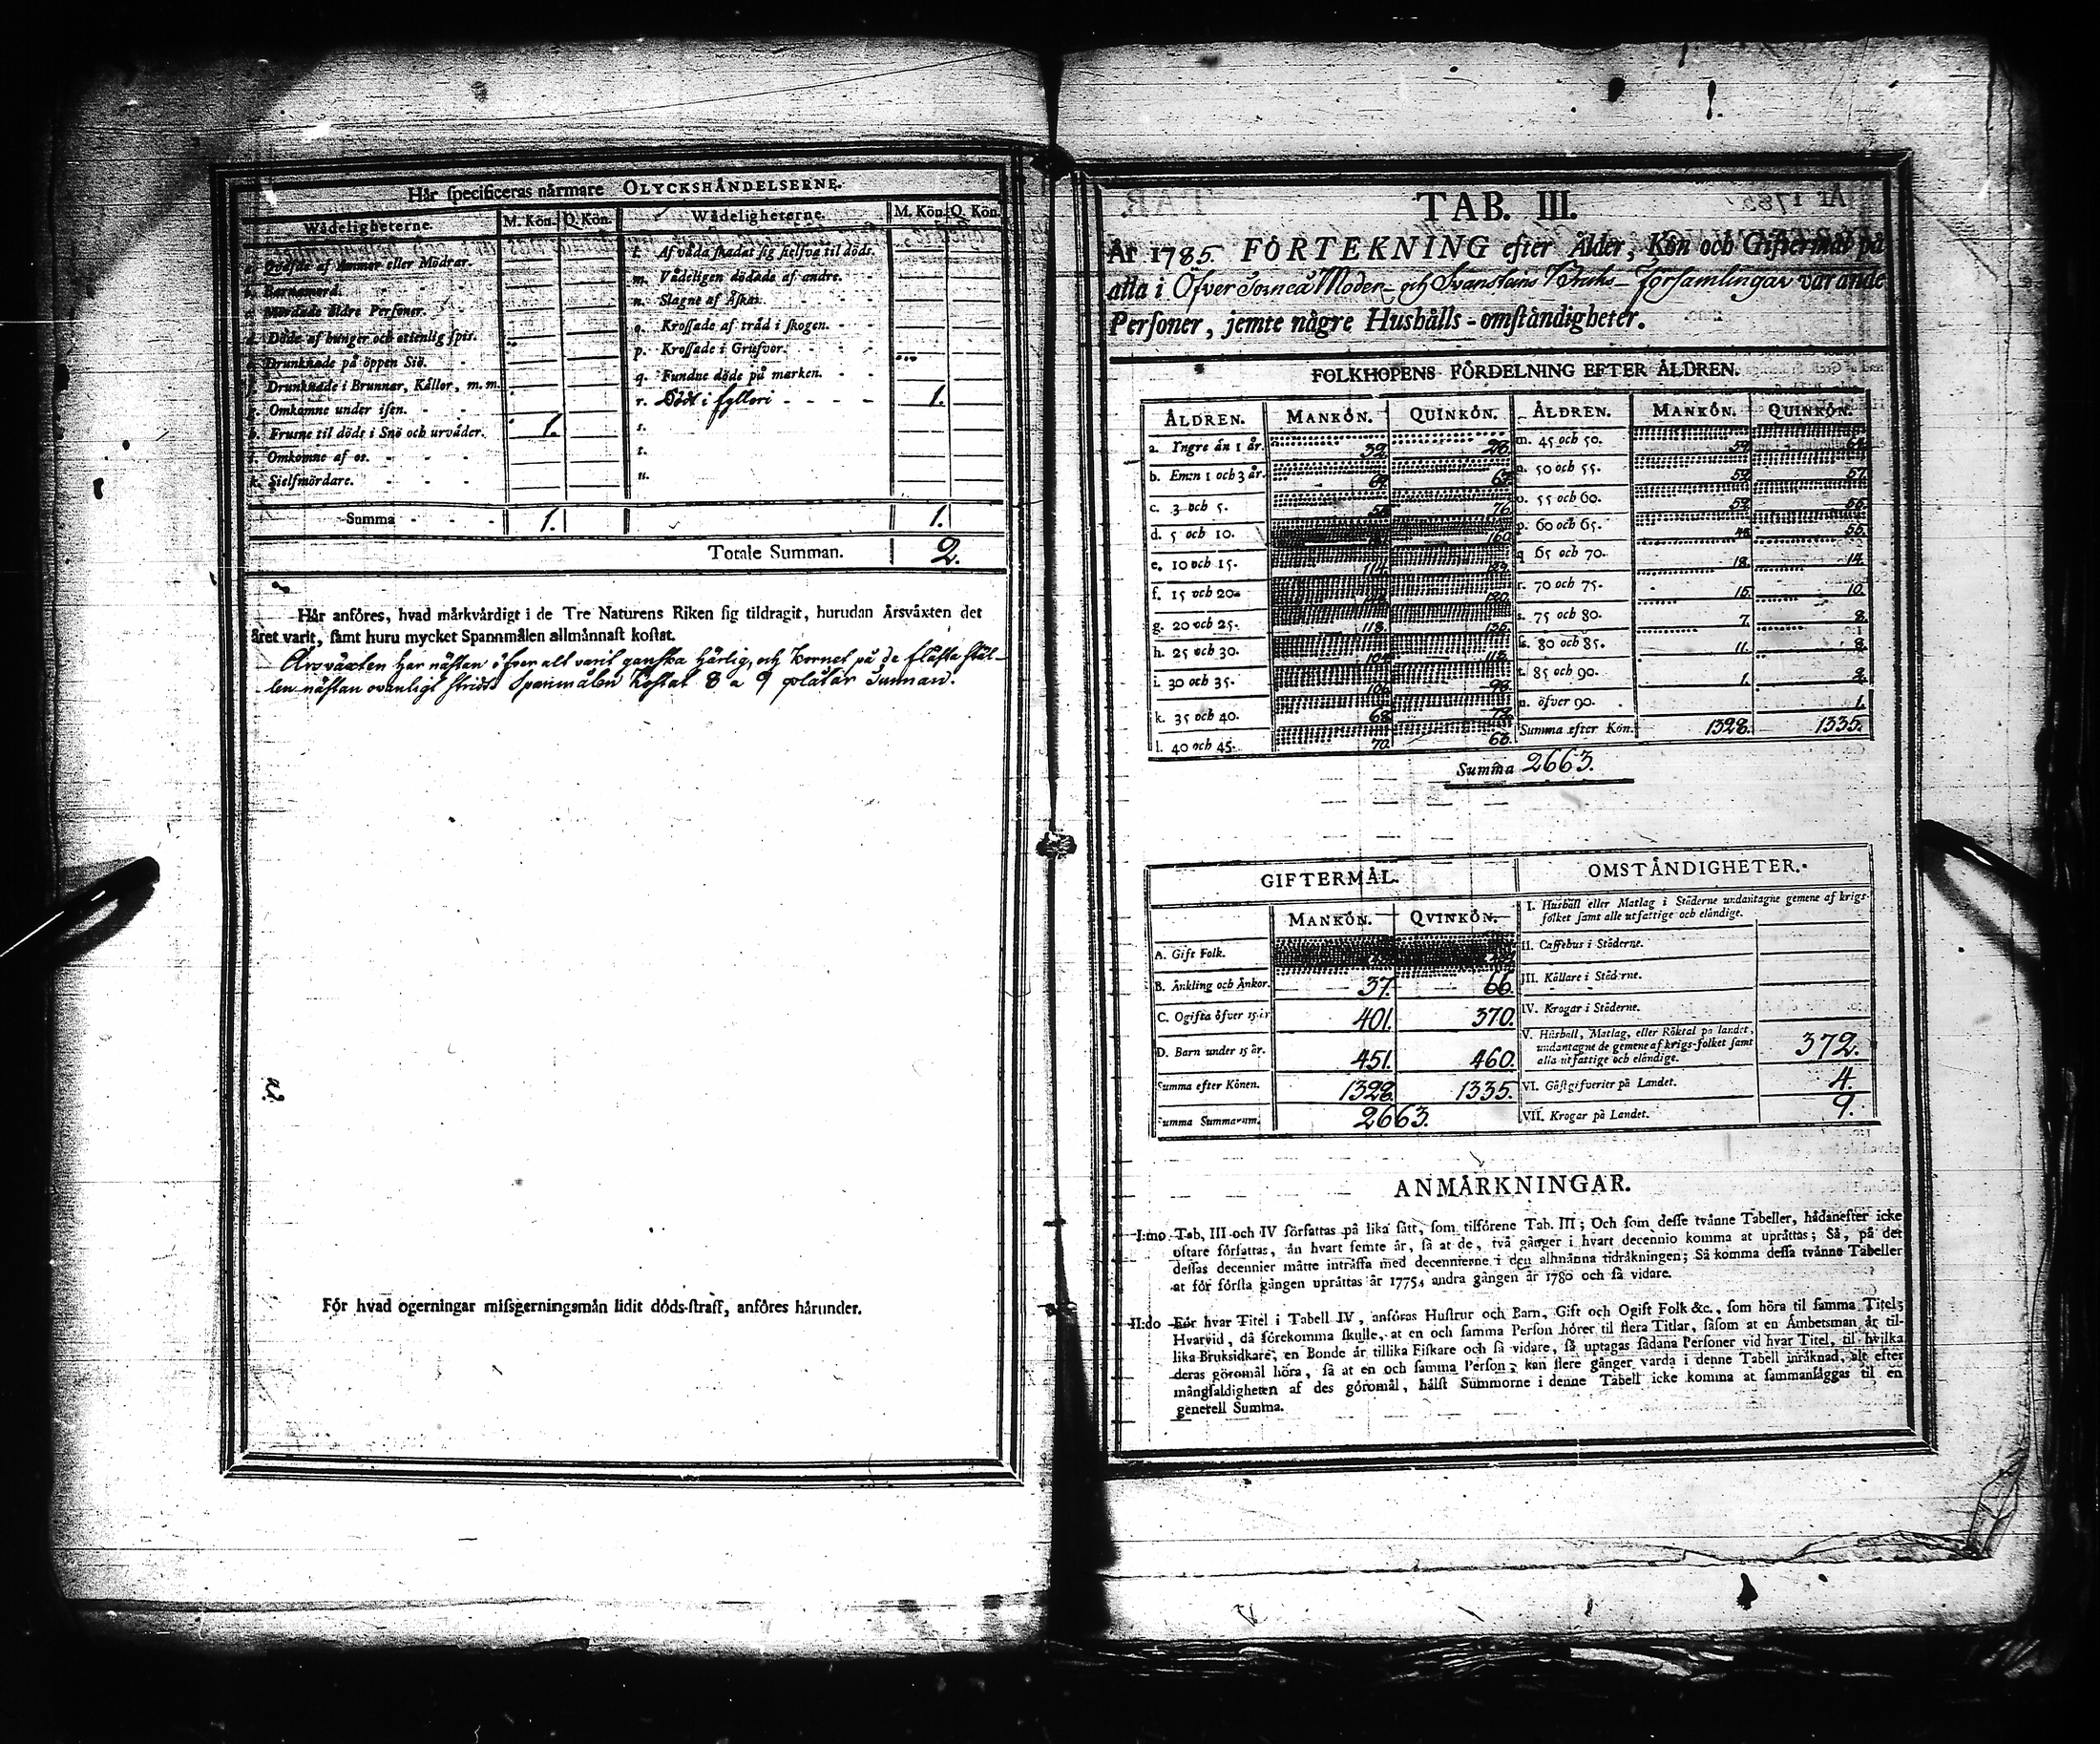 Hår specificeras nårmare OLYCKSHÅNDELSERNE.
Wådeligheterne. M. Kön. Q. Kön. Wådeligheterne. M. Kön. Q. Kön.
a. Qvåfde af Ammor eller Mödrar.
b. Barnamord.
c. Mördade åldre Personer.
d. Döde af hunger och otienlig spis.
e. Drunknade på öppen Siö.
f. Drunknade i Brunnar, Kållor, m. m.
g. Omkomne under isen.
h. Frusne til döds i Snö och urvåder. 1.
i. Omkomne af os.
k. Sielfmördare.
l. Af våda skadat sig sielfva til döds.
m. Vådeligen dödade af andre.
n. Slagne af Åskan.
o. Krossade af tråd i skogen.
p. Krossade i Grufvor.
q. Fundne döde på marken.
r. Död i fylleri 1.
s.
t.
u.
Summa 1. 1.
Totale Summan. 2.
Hår anföres, hvad mårkvårdigt i de Tre Naturens Riken sig tildragit, hurudan Årsvåxten det
året varit, samt huru mycket Spannmålen allmånnast kostat.
Årsväxten har nästan öfver alt varit ganska härlig, och Kornet på de flästa stäl-
len nästan ovanligt Spanmålen kostat 8 a 9 plåtar Tunnan.
2.
För hvad ogerningar missgerningsmån lidit döds-straff, anföres hårunder.
TAB. III.
År 1785. FÖRTEKNING efter Ålder, Kön och Giftermål på
alla i Öfver Torneå Moder- och Svansteins Bruks- Församlingar varande
Personer, jemte någre Hushålls-omståndigheter.
FOLKHOPENS FÖRDELNING EFTER ÅLDREN.
ÅLDREN. MANKÖN. QUINKÖN. ÅLDREN. MANKÖN. QUINKÖN.
a. Yngre ån 1 år. 39.
b. Emn 1 och 3 år.
c. 3 och 5. 76
d. 5 och 10. 160.
e. 10 och 15. 114.
f. 15 och 20.
g. 20 och 25. 118.
h. 25 och 30. 104.
i. 30 och 35. 106.
k. 35 och 40. 68.
l. 40 och 45. 70.
m. 45 och 50.
n. 50 och 55. 59. 57.
o. 55 och 60. 59.
p. 60 och 65.
q. 65 och 70. 18. 14.
r. 70 och 75. 15. 10.
s. 75 och 80. 7. 8.
80 och 85. 11. 8.
t. 85 och 90. 1. 2.
u. öfver 90. 1.
Summa efter Kön. 1328. 1335.
Summa 2663.
GIFTERMÅL. OMSTÅNDIGHETER.
MANKÖN. QVINKÖN.
A. Gift Folk.
B. Ånkling och Ånkor. 37. 66.
C. Ogifta öfver 15 år 401. 370.
D. Barn under 15 år. 451. 460.
Summa efter Könen. 1328. 1335.
Summa Summarum. 2663.
I. Hushåll eller Matlag i Ståderne undantagne gemene af krigs-
folket samt alle utfattige och elåndige.
II. Caffehus i Ståderne.
III. Kållare i Ståderne.
IV. Krogar i Ståderne.
V. Hushåll, Matlag, eller Röktal på landet,
undantagne de gemene af krigs-folket samt
alla utfattige och elåndige. 372.
VI. Gåstgifverier på Landet. 4.
VII. Krogar på Landet. 9.
ANMÅRKNINGAR.
I:mo. Tab, III och IV författas på lika sått, som tilförene Tab. III; Och som desse tvånne Tabeller, hådanefter icke
oftare författas, ån hvart femte år, så at de, två gånger i hvart decennio komma at upråttas; Så, på det
dessas decennier måtte intråffa med decennierne i den allmånna tidråkningen; Så komma dessa tvånne Tabeller
at för första gången upråttas år 1775, andra gången år 1780 och så vidare.
II:do För hvar Titel i Tabell IV, anföras Hustrur och Barn, Gift och Ogift Folk &c., som höra til samma Titel;
Hvarvid, då förekomma skulle, at en och samma Person hörer til flera Titlar, såsom at en Åmbetsman år til-
lika Bruksidkare, en Bonde år tillika Fiskare och så vidare, så uptagas sådana Personer vid hvar Titel, til hvilka
deras göromål höra, så at en och samma Person, kan flere gånger varda i denne Tabell inråknad, alt efter
mångfaldigheten af des göromål, hålst Summorne i denne Tabell icke komma at sammanlåggas til en
generell Summa.